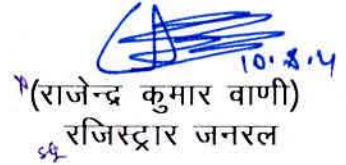 10.8.4
(राजेन्द्र कुमार वाणी)
रजिस्ट्रार जनरल